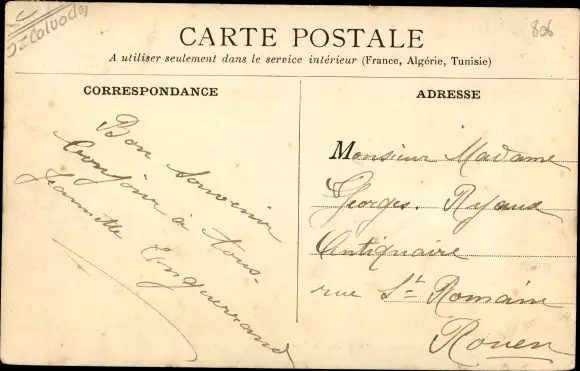 = Calvados
806
CARTE POSTALE
A utiliser seulement dans le service intérieur (France, Algérie, Tunisie)
CORRESPONDANCE
Bon souvenir
bonjour à tous-
Jeannette Enguerrand
ADRESSE
Monsieur Madame
Georges
Antiquaire
rue St Romain
Rouen